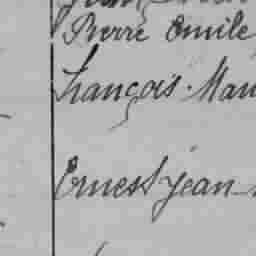 Pierre Emile
François. Mau
Ernest Jean